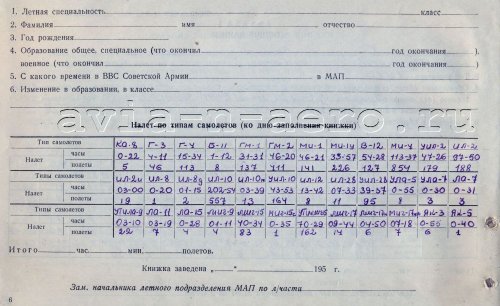 1. Летная специальность класс
2. Фамилия имя отчество
3. Год рождения
4. Образование общее, специальное (что окончил год окончания ).
военное (что окончил год окончания ).
5. С какого времени в ВВС Советской Армии в МАП
6. Изменение в образовании, в классе.
avia-n-aero.ru
Налет по типам самолетов (ко дню заполнения книжки)
Тип самолетов Г-3 Г-4 В-11 ГМ-1 МИ-1 МИ-1У В-12 МИ-4 УИЛ-2 ИЛ-2
Налет часы 0-22 4-11 15-34 1-12 31-31 46-20 46-21 33-57 54-28 113-37 47-26 97-50
полеты 5 46 113 8 137 141 226 127 854 179 188
Тип самолетов ИЛ-2и ИЛ-8 ИЛ-10 УИЛ-10 ИЛ-28 ЛА-7
Налет часы 03-00 0-20 01-15 202-54 03-39 43-53 13-42 07-33 39-57 0-55 0-30 0-31
полеты 19 1 2 557 13 164 8 11 95 8 3 3
Типы самолетов ЛА-9 ЛА-11 ЛА-15 МИГ-9 МИГ-15 МИГ-17 ЯК-3
Налет часы 03-10 03-19 0-28 01-11 40-34 0-35 70-29 09-44 04-50 07-18 0-55 0-40
полеты 22 7 4 4 83 1 162 14 6 7 6 1
Итого час. мин. полетов.
Книжка заведена „ “ 195 г.
Зам. начальника летного подразделения МАП по л/части
6